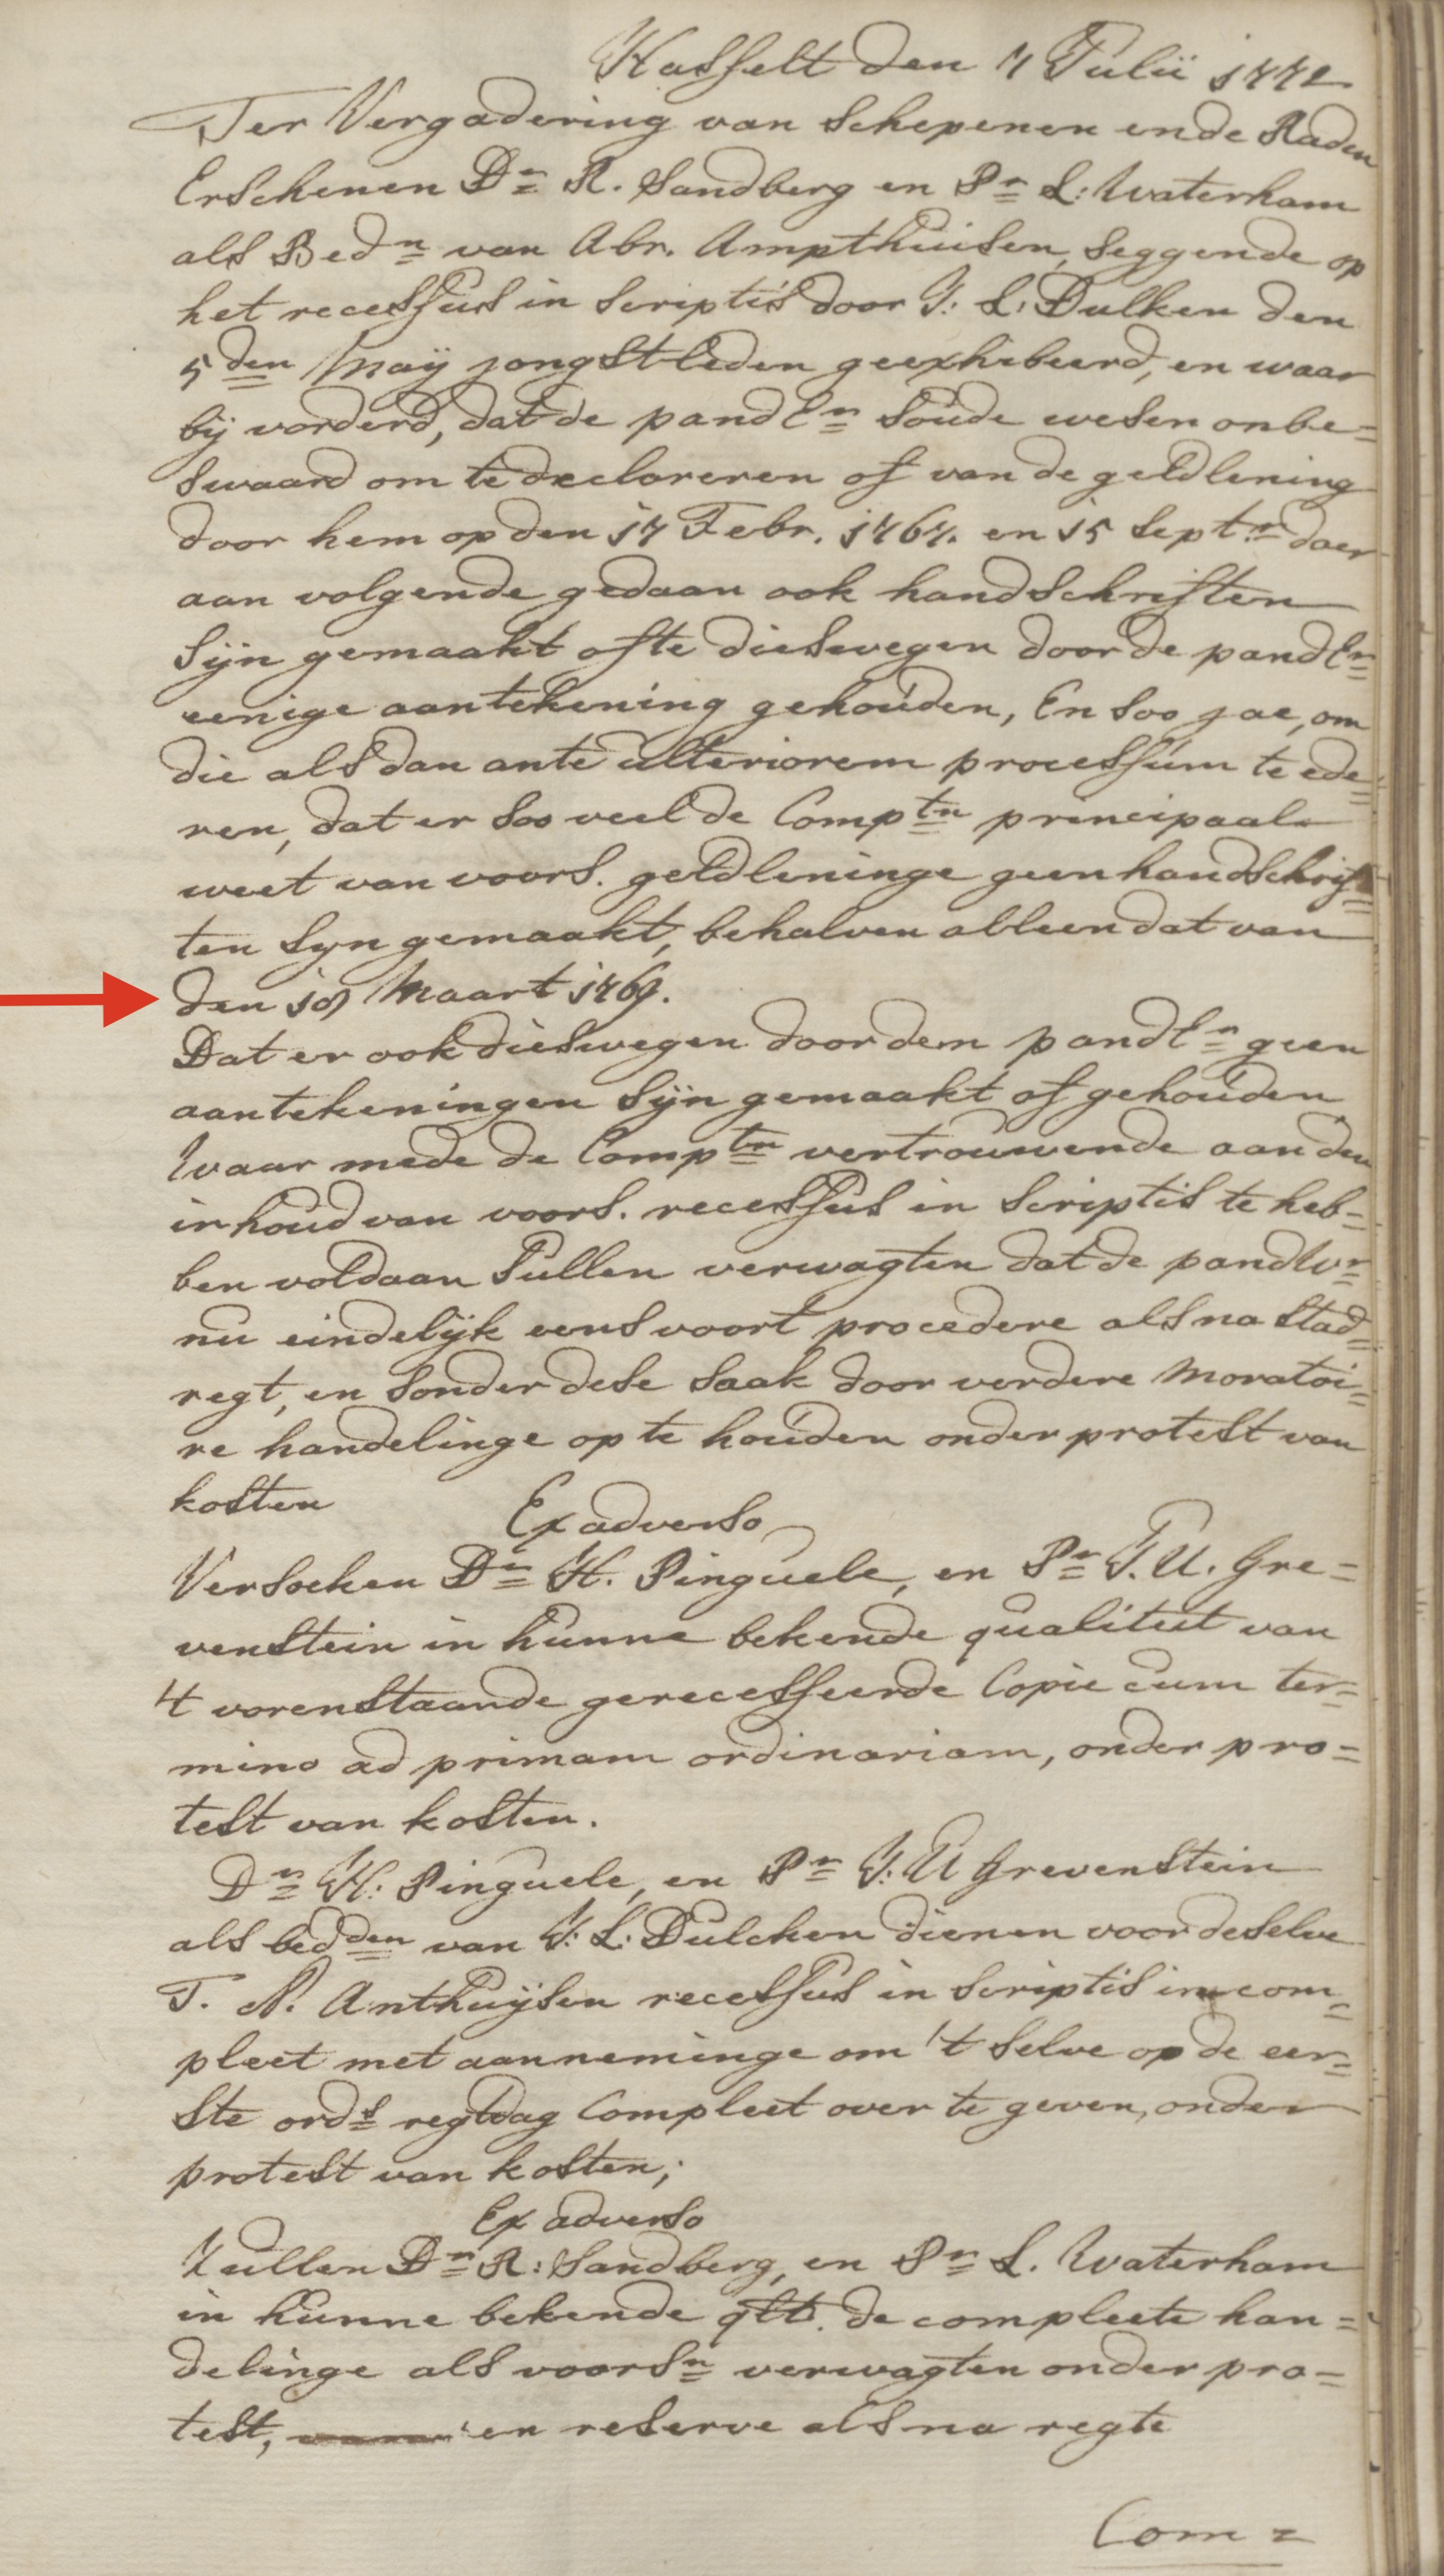 Hasselt den 7 Julii 1772
Ter Vergadering van Schepenen ende Raden
Erschenen Dr R. Sandberg en Pr L: Waterham
als Bedn van Abr. Ampthuisen, seggende op
het recessus in scriptis door J: L: Dulken den
5den Maij jongstleden geexhibeerd, en waar
bij vorderd, dat de pandEr soude wesen onbe=
swaard om te declareren of van de geldlening
door hem op den 17 Febr. 1767. en 15 Septr daer
aan volgende gedaan ook handschriften
sijn gemaakt ofte dieswegen door de pandEr
eenige aantekening gehouden, En soo jae, om
die als dan ante ulteriorem processum te ede=
ren, dat er soo veel de Comptn principaal
weet van voors. geldleninge geen handschrif=
ten syn gemaakt, behalven alleen dat van
den 18 Maart 1769.
Dat er ook dieswegen door dem pandEr geen
aantekeningen sijn gemaakt of gehouden
Waar mede de Comptn vertrouwende aan den
inhoud van voors. recessus in scriptis te heb=
ben voldaan sullen verwagten dat de pandvr
nu eindelijk eens voort procedere als na stad=
regt, en sonder dese saak door verdere moratoi=
re handelinge op te houden onder protest van
kosten
Ex adverso
Versoeken Dr H. Pinguele, en Pr J. U. Gre=
venstein in hunne bekende qualiteit van
't vorenstaande gerecesseerde Copie cum ter=
mino ad primam ordinariam, onder pro=
test van kosten.
Dr H. Pinguele, en Pr J: U Grevenstein
als bedden van J: L: Dulcken dienen voor deselve
T. A. Anthuijsen recessus in scriptis incom=
pleet met aanneminge om 't selve op de eer=
ste ords regtdag Compleet over te geven, onder
protest van kosten;
Ex adverso
Zullen Dr R: Sandberg, en Pr L. Waterham
in hunne bekende qltt. de compleete han=
delinge als voorsn verwagten onder pro=
test, en reserve als na regte
Com=